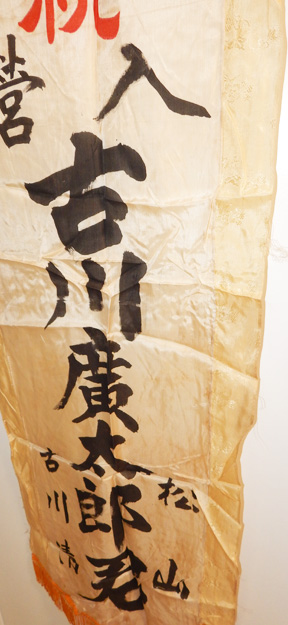 祝
入
営
古川廣太郎君
松山
古川清